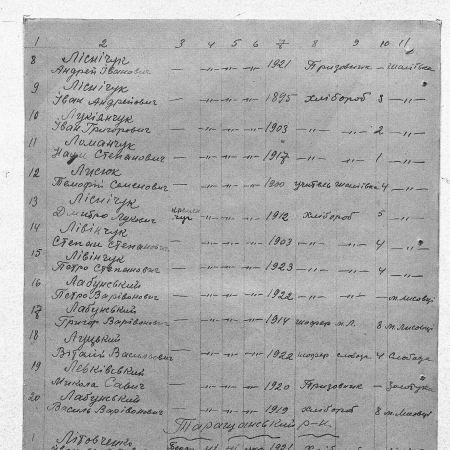 1 2 3 4 5 6 7 8 9 10 11
8 Ліснічук
Андрей Іванович — -"- -"- -"- 1921 Призовник —
9 Ліснічук
Іван Андрейович — -"- -"- -"- 1895 хлібороб 3 -"-
10 Лукіянчук
Іван Григорович — -"- -"- -"- 1903 -"- -"- 2 -"-
11 Ломанчук
Степанович — -"- -"- -"- 1917 -"- -"- 1 -"-
12 Лисюк
Семенович — -"- -"- -"- 1900 4 -"-
13 Ліснічук
Дмитро Лукич -"- -"- -"- 1912 хлібороб 5 -"-
14 Лівінчук
Степан Степанович — -"- -"- -"- 1903 -"- -"- 4 -"-
15 Лівінчук
Петро Степанович — -"- -"- -"- 1923 -"- -"- 4 -"-
16 Лабунський
Петро Варівонович — -"- -"- -"- 1922 -"- -"-
17 Лабунський
Григор Варівонович — -"- -"- -"- 1914 шофер 8
18
Віталій Васильович — -"- -"- -"- 1922 шофер слобода 4 Слобода
19 Левківський
Микола Савич — -"- -"- -"- 1920 Призовник —
20 Лабунський
Василь Варівонович — -"- -"- -"- 1919 хлібороб 8
Таращанський р-н.
1 Літовченко